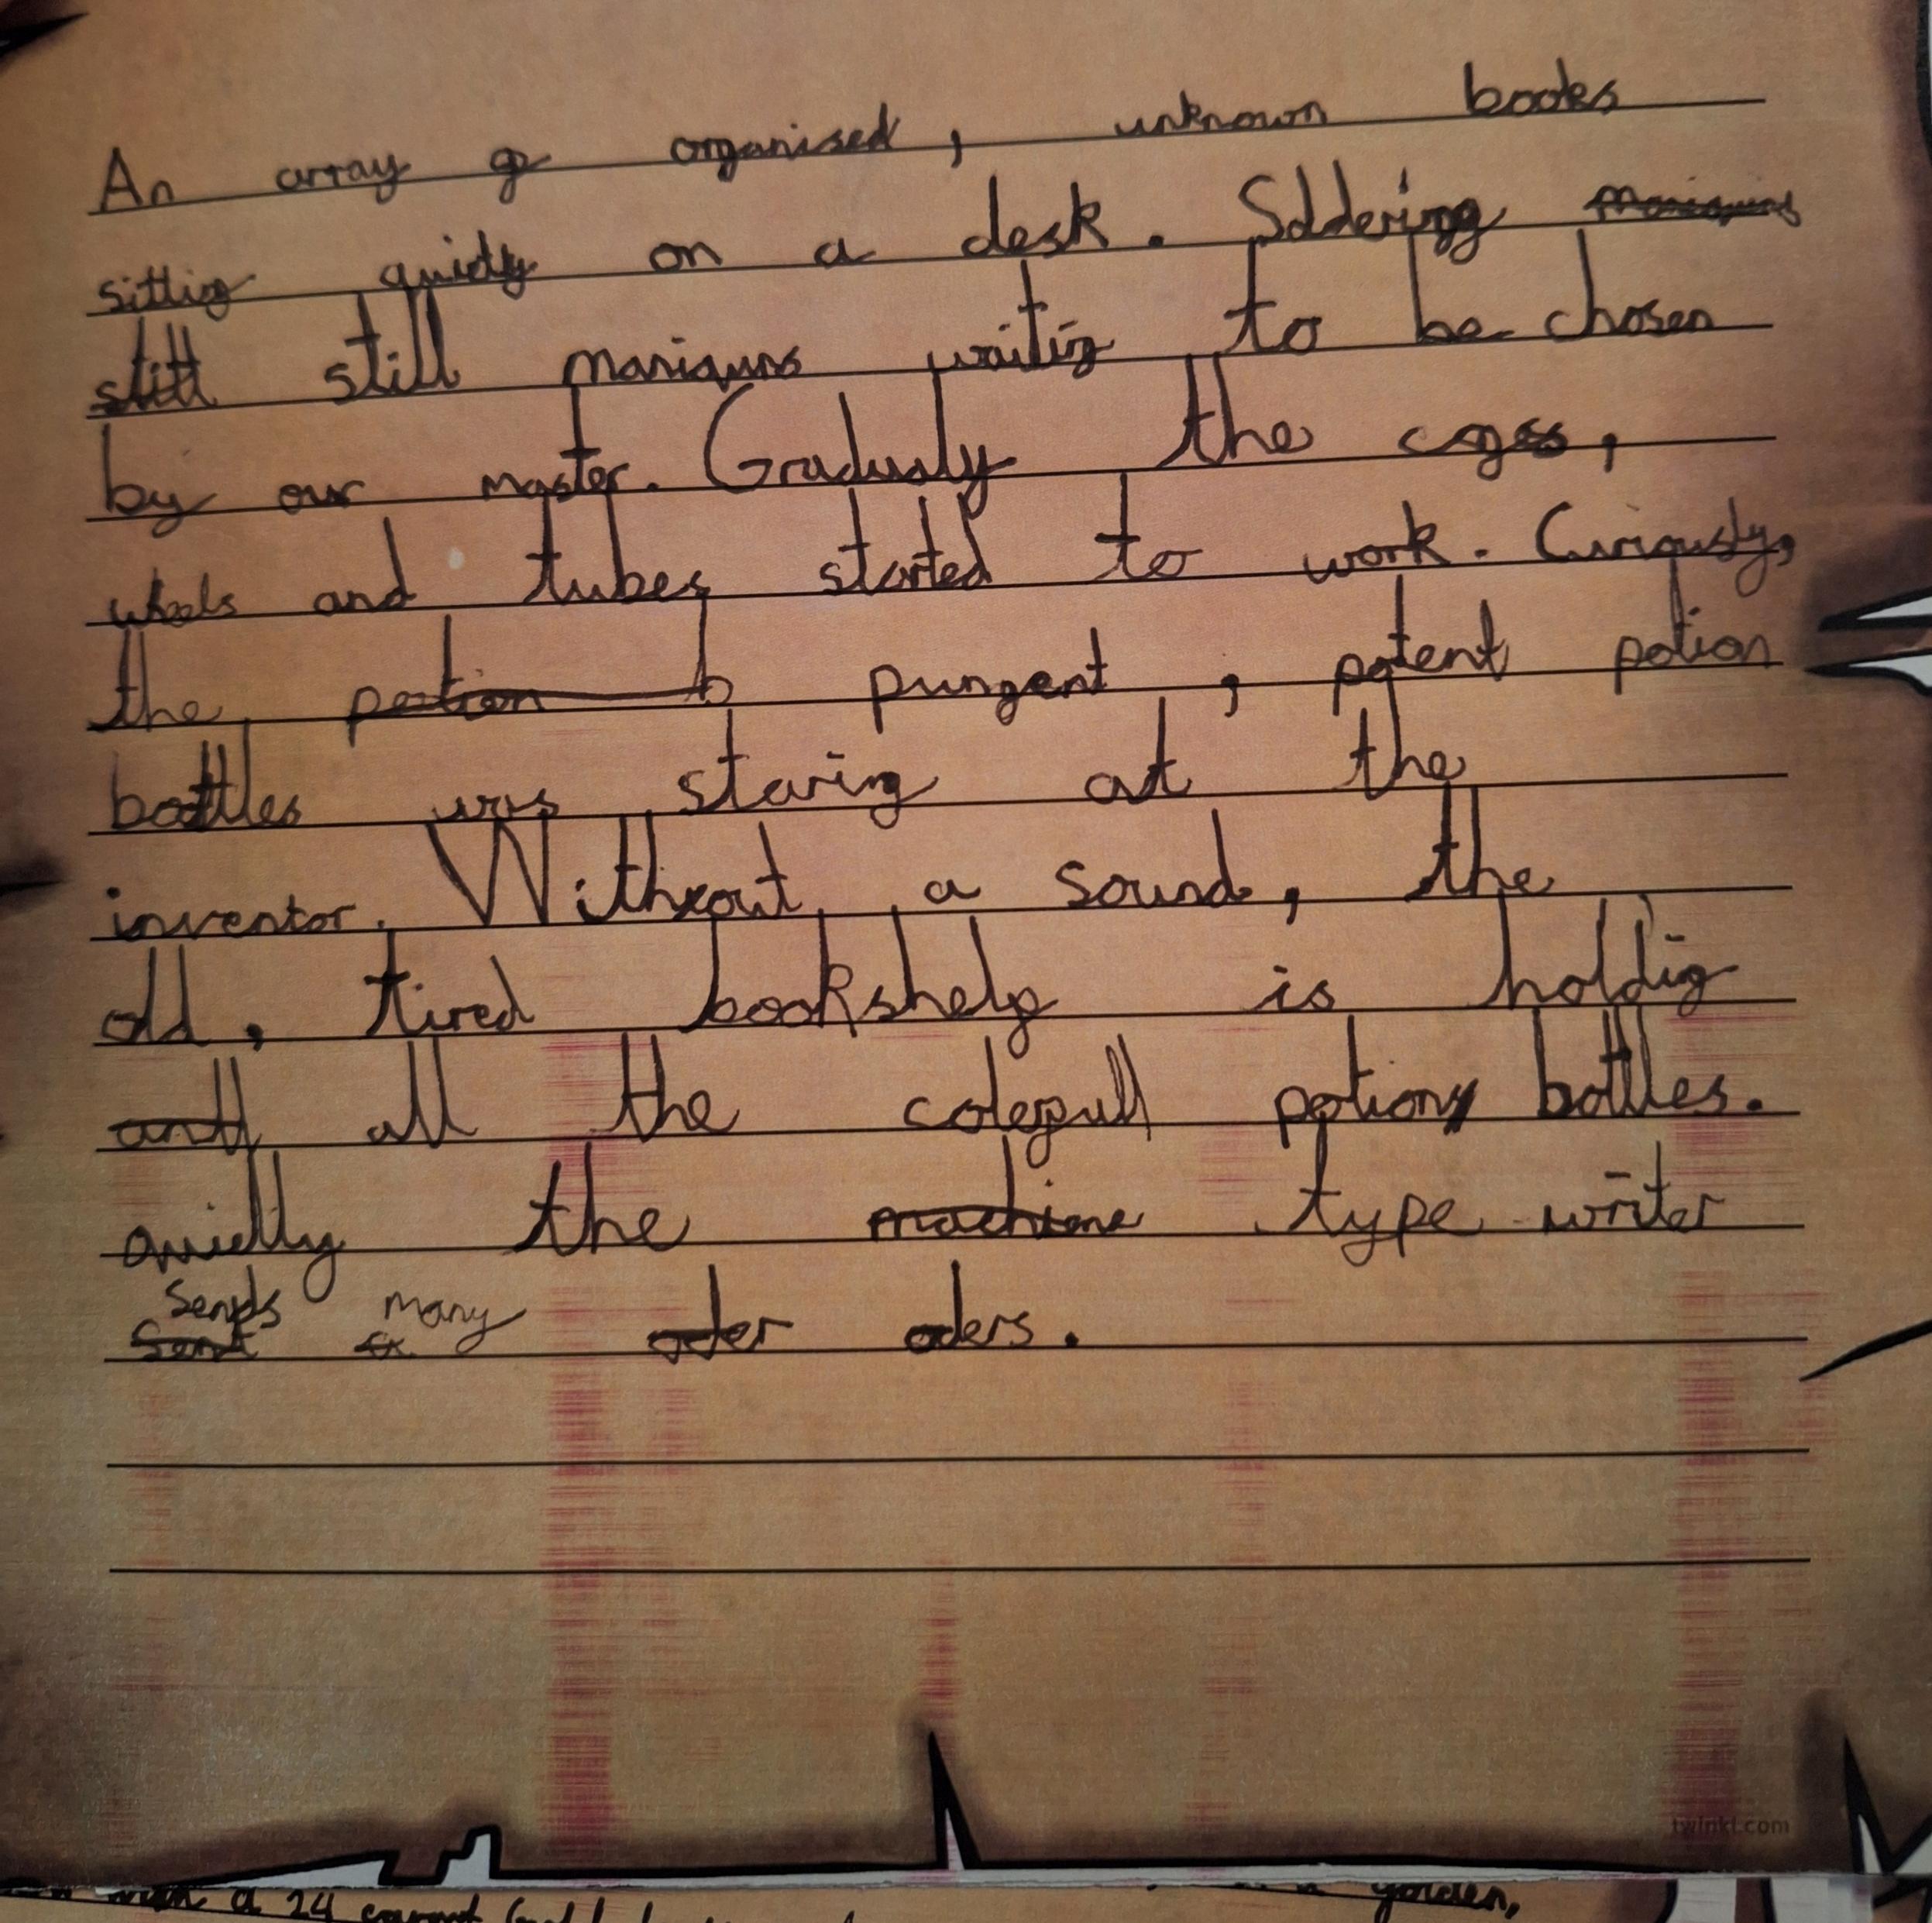 An array of organised, unknown books
sitting quietly on a desk. Soldering maniquns
still still maniquns waiting to be chosen
by our master. Gradualy the cogs,
wheels and tubes started to work. Curiously,
the potion b pungent, potent potion
bottles was staring at the
inventor. Without a sound, the
old, tired bookshelf is holdig
and all the colefull potion bottles.
Quietly the machine type writer
Sends many
Sent oder oders.
twinkl.com
a 24 golden,